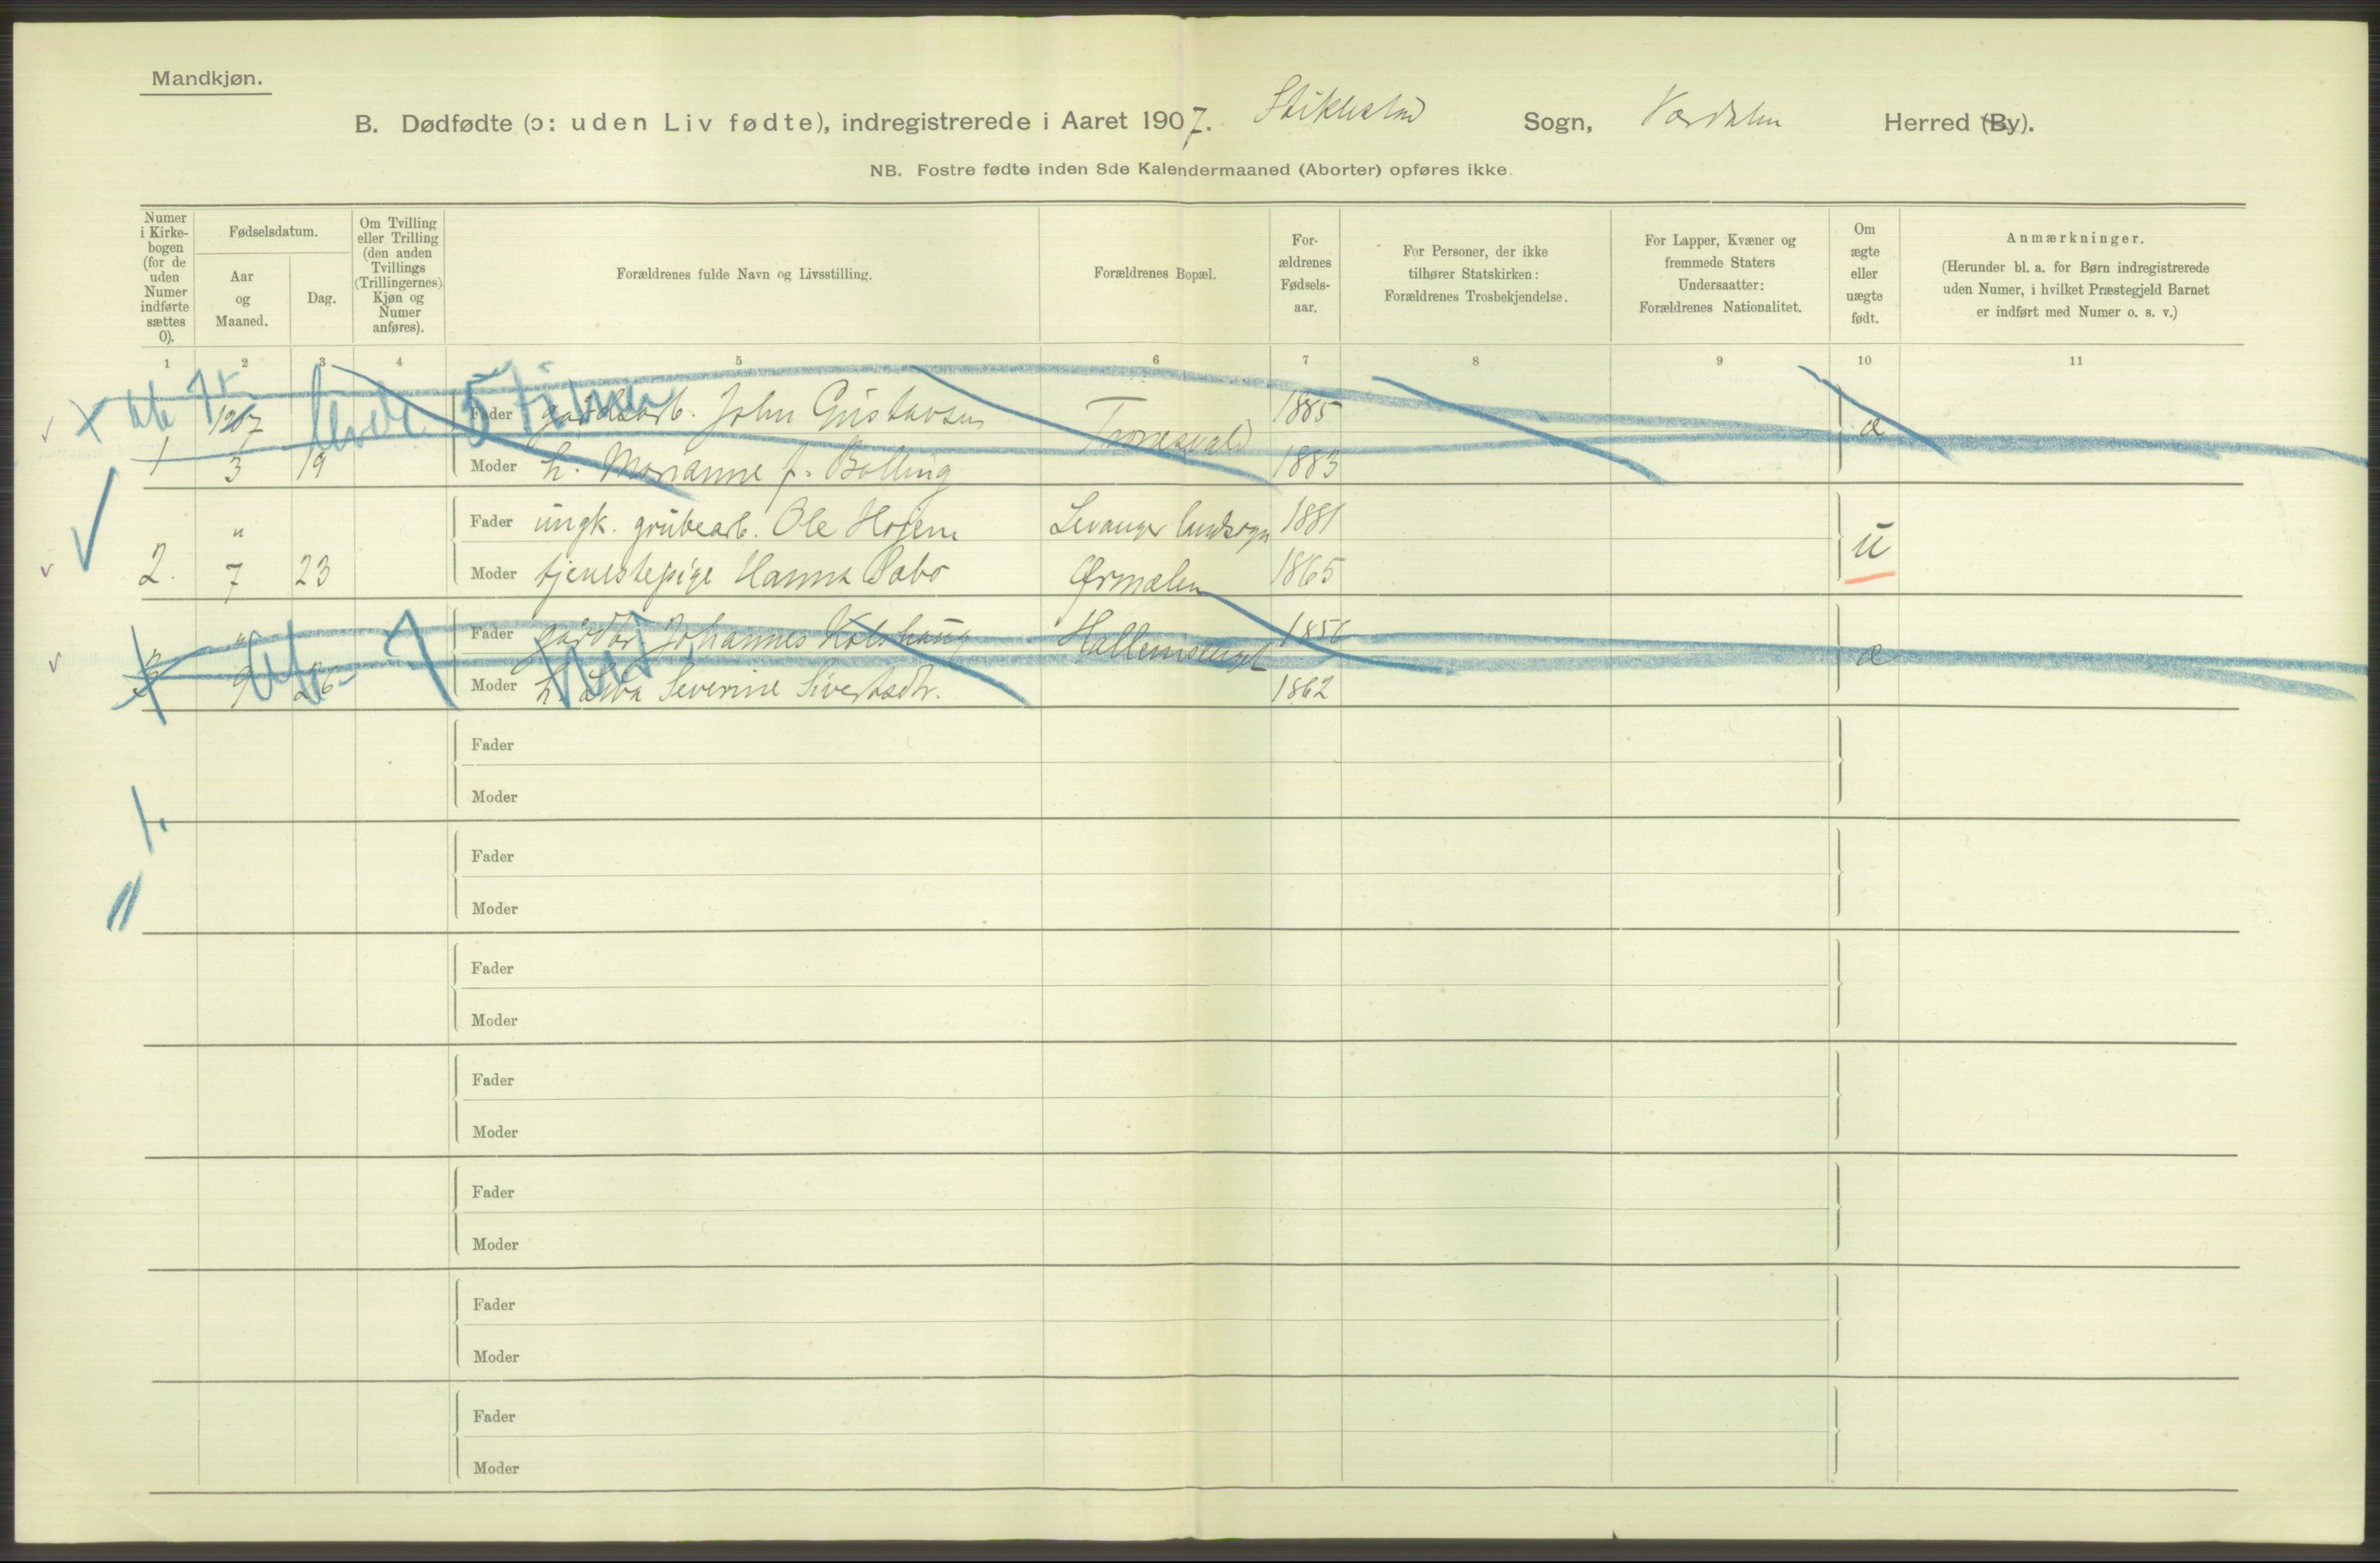 Mandkjøn.
B. Dødfødte (ɔ: uden Liv fødte), indregistrerede i Aaret 1907. Stiklestad Sogn, Værdalen Herred (By).
NB. Fostre fødte inden 8de Kalendermaaned (Aborter) opføres ikke.
Numer i Kirke-bogen (for de uden Numer indførte sættes 0).
Fødselsdatum.
Aar og Maaned.
Dag.
Om Tvilling eller Trilling (den anden Tvillings (Trillingernes) Kjøn og Numer anføres).
Forældrenes fulde Navn og Livsstilling.
Forældrenes Bopæl.
For-ældrenes Fødsels-aar.
For Personer, der ikke tilhører Statskirken: Forældrenes Trosbekjendelse.
For Lapper, Kvæner og fremmede Staters Undersaatter: Forældrenes Nationalitet.
Om ægte eller uægte født.
Anmærkninger.
(Herunder bl. a. for Børn indregistrerede uden Numer, i hvilket Præstegjeld Barnet er indført med Numer o. s. v.)
1 2 3 4 5 6 7 8 9 10 11
levde 5 timer
1907 Fader gaardsarb. John Gustavsen 1885 æ
1 3 19 Moder h. Marianne f. Bolling 1883
" Fader ungk. grubearb. Ole Hojem Levanger landsogn 1881 u
2. 7 23 Moder tjenestepige Hanna Sabo Ørmelen 1865
" Fader Johannes Kolshaug 1856 æ
3 9 26 Moder h. Severine Sivertsdtr. 1862
Fader
Moder
Fader
Moder
Fader
Moder
Fader
Moder
Fader
Moder
Fader
Moder
Fader
Moder